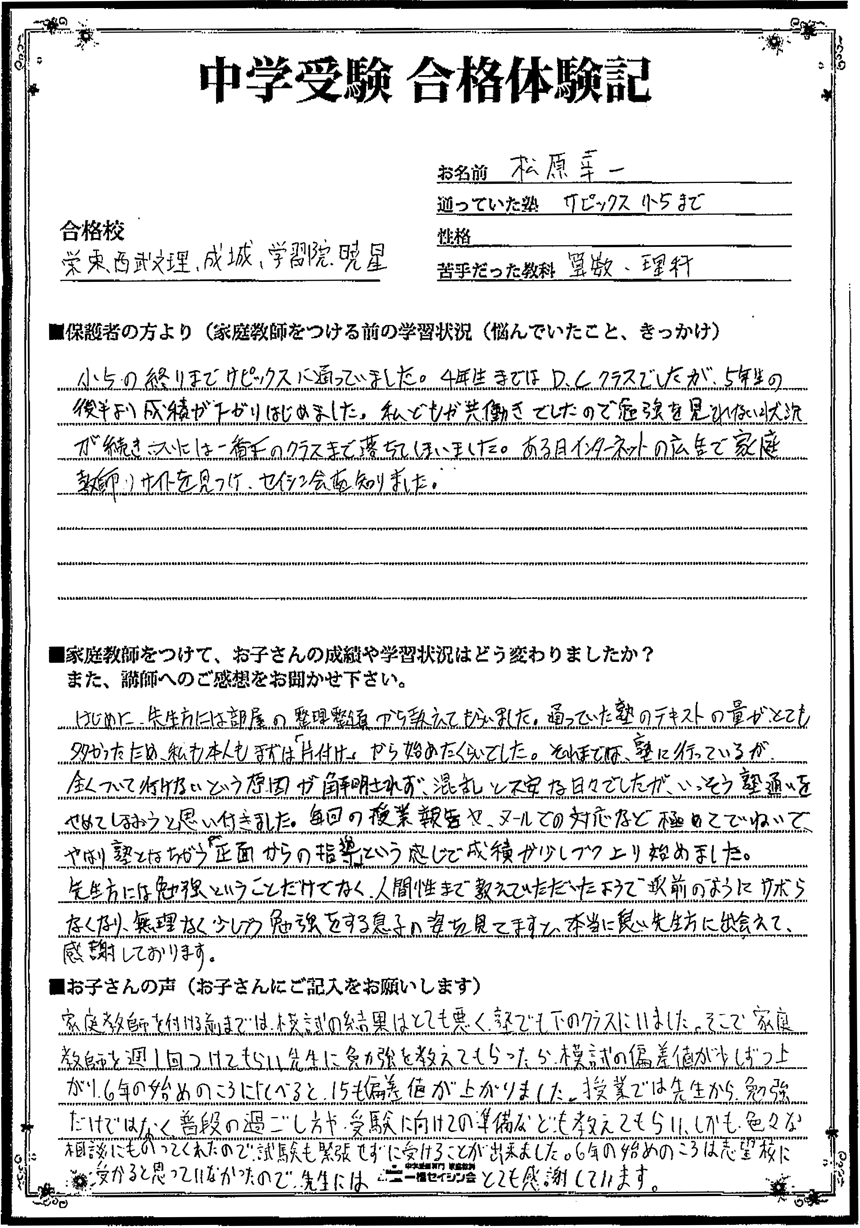 中学受験 合格体験記
お名前 松原幸一
通っていた塾 サピックス 小5まで
合格校
性格
栄東、西武文理、成城、学習院、暁星
苦手だった教科 算数・理科
■保護者の方より（家庭教師をつける前の学習状況（悩んでいたこと、きっかけ）
小5の終りまでサピックスに通っていました。4年生まではD、Cクラスでしたが、5年生の
後半より成績が下がりはじめました。私どもが共働きでしたので勉強を見れない状況
が続き、ついには一番下のクラスまで落ちてしまいました。ある日インターネットの広告で家庭
教師のサイトを見つけ、セイシン会を知りました。
■家庭教師をつけて、お子さんの成績や学習状況はどう変わりましたか？
また、講師へのご感想をお聞かせ下さい。
はじめに、先生方には部屋の整理整頓から教えてもらいました。通っていた塾のテキストの量がとても
多かったため、私も本人もまずは「片付け」から始めたくらいでした。それまでは、塾に行っているが、
全くついて行けないという原因が解明されず、混乱と不安な日々でしたが、いっそう塾通いを
やめてしまおうと思い付きました。毎回の授業報告や、メールでの対応など極めてていねいで、
やはり塾とはちがう「正面からの指導」という感じで成績が少しづつ上り始めました。
先生方には勉強ということだけでなく、人間性まで教えていただいたようで以前のようにサボら
なくなり、無理なく少しづつ勉強をする息子の姿を見てますと、本当に良い先生方に出会えて、
感謝しております。
■お子さんの声（お子さんにご記入をお願いします）
家庭教師を付ける前までは、模試の結果はとても悪く、塾でも下のクラスにいました。そこで家庭
教師を週1回つけてもらい、先生に勉強を教えてもらったら、模試の偏差値が少しずつ上
がり、6年の始めのころにくらべると、15も偏差値が上がりました。授業では先生から、勉強
だけではなく、普段の過ごし方や、受験に向けての準備なども教えてもらい、しかも、色々な
相談にものってくれたので、試験も緊張せずに受けることが出来ました。6年の始めのころは志望校に
受かると思っていなかったので、先生には 中学受験専門 家庭教師 一橋セイシン会 とても感謝しています。